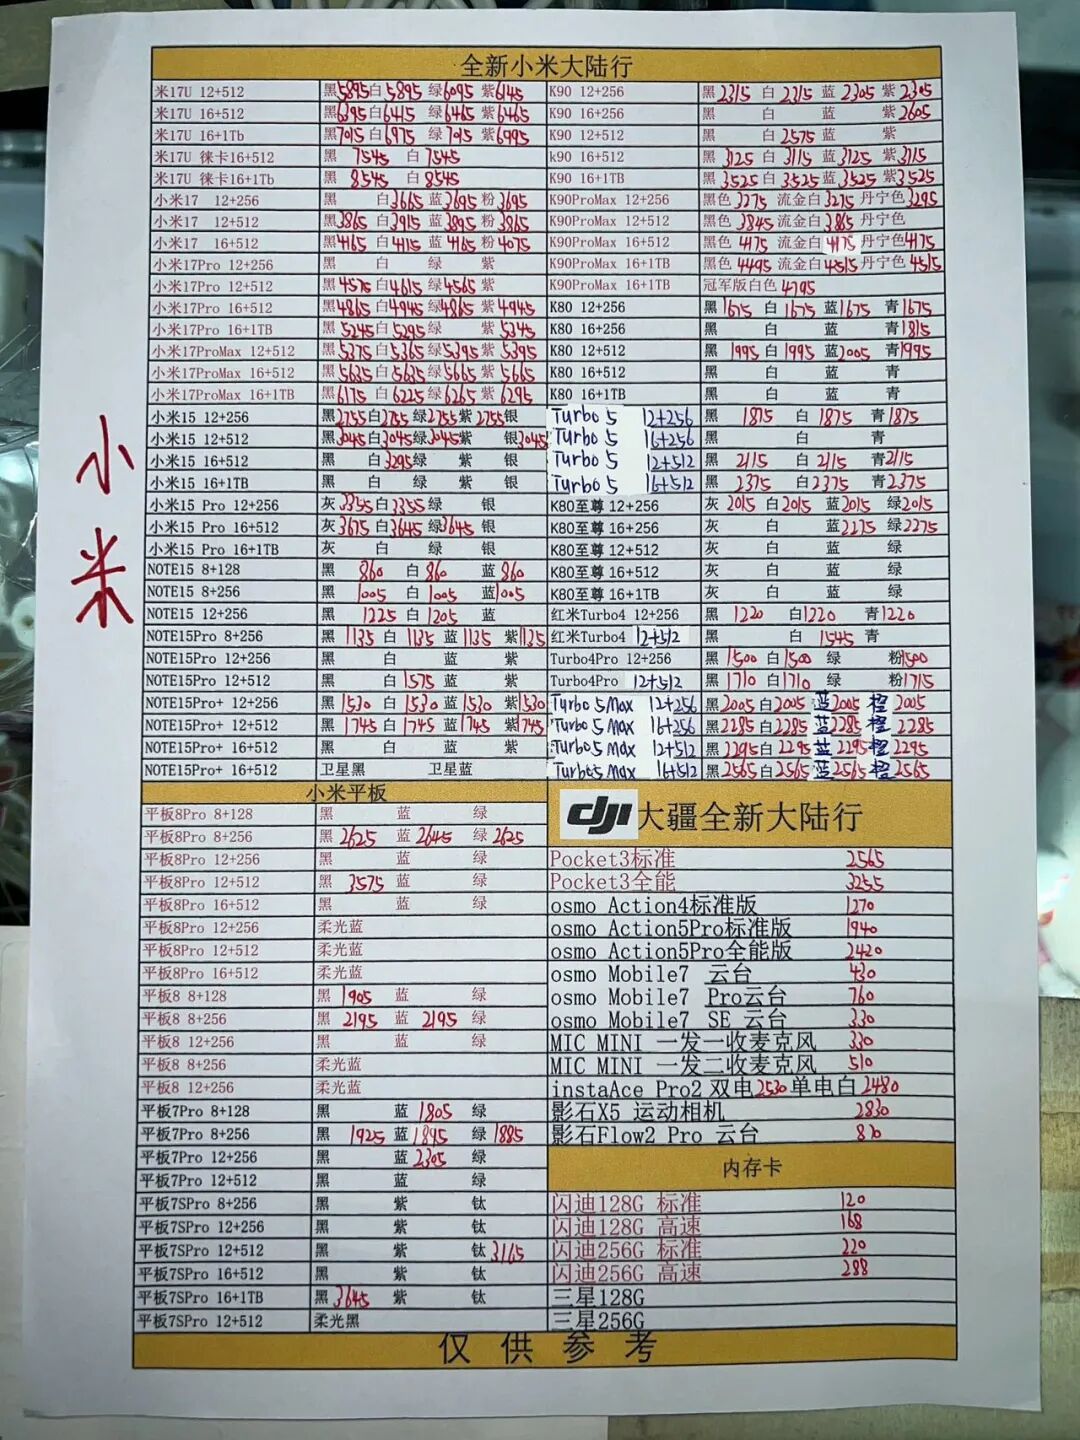 全新小米大陆行
米17U 12+512 黑5895白5895 绿6095 紫6145 K90 12+256 黑2315 白2315 蓝2305 紫2305
米17U 16+512 黑6395白6415 绿6465 紫6465 K90 16+256 黑 白 蓝 紫2605
米17U 16+1Tb 黑7015白6975 绿7015 紫6995 K90 12+512 黑 白2575 蓝 紫
米17U 徕卡16+512 黑 7545 白7545 k90 16+512 黑3125 白3115 蓝3125 紫3115
米17U 徕卡16+1Tb 黑 8545 白8545 K90 16+1TB 黑3525 白3525 蓝3525 紫3525
小米17 12+256 黑 白3665 蓝3695 粉3695 K90ProMax 12+256 黑色3275 流金白3275 丹宁色3295
小米17 12+512 黑3865 白3915 蓝3895 粉3865 K90ProMax 12+512 黑色3845 流金白3865 丹宁色
小米17 16+512 黑4165 白4115 蓝4165 粉4075 K90ProMax 16+512 黑色4175 流金白4175 丹宁色4175
小米17Pro 12+256 黑 白 绿 紫 K90ProMax 16+1TB 黑色4495 流金白4515 丹宁色4515
小米17Pro 12+512 黑4575白4615 绿4565 紫 K90ProMax 16+1TB 冠军版白色4795
小米17Pro 16+512 黑4865白4945 绿4865 紫4945 K80 12+256 黑1675 白1675 蓝1675 青1675
小米17Pro 16+1TB 黑5245白5295 绿 紫5345 K80 16+256 黑 白 蓝 青1815
小米17ProMax 12+512 黑5375白5365 绿5395 紫5395 K80 12+512 黑1995 白1995 蓝2005 青1995
小米17ProMax 16+512 黑5635白5635 绿5665 紫5665 K80 16+512 黑 白 蓝 青
小米17ProMax 16+1TB 黑6175白6225 绿6265 紫6295 K80 16+1TB 黑 白 蓝 青
小米15 12+256 黑2755白2755 绿2755 紫2755银 Turbo 5 12+256 黑 1875 白1875 青1875
小米15 12+512 黑3045白3045绿3045紫 银3045 Turbo 5 16+256 黑 白 青
小米15 16+512 黑 白3295绿 紫 银 Turbo 5 12+512 黑 2115 白2115 青2115
小米15 16+1TB 黑 白 绿 紫 银 Turbo 5 16+512 黑 2375 白2375 青2375
小米15 Pro 12+256 灰3355白3355绿 银 K80至尊 12+256 灰2015 白2015 蓝2015 绿2015
小米15 Pro 16+512 灰3675白3645绿3645 银 K80至尊 16+256 灰 白 蓝2275 绿2275
小米15 Pro 16+1TB 灰 白 绿 银 K80至尊 12+512 灰 白 蓝 绿
NOTE15 8+128 黑 860 白860 蓝860 K80至尊 16+512 灰 白 蓝 绿
NOTE15 8+256 黑 1005 白1005 蓝1005 K80至尊 16+1TB 灰 白 蓝 绿
NOTE15 12+256 黑 1225 白1205 蓝 红米Turbo4 12+256 黑 1220 白1220 青1220
NOTE15Pro 8+256 黑1135 白1135 蓝1135 紫1135 红米Turbo4 12+512 黑 白 1545 青
NOTE15Pro 12+256 黑 白 蓝 紫 Turbo4Pro 12+256 黑1500 白1500 绿 粉1500
NOTE15Pro 12+512 黑 白1575 蓝 紫 Turbo4Pro 12+512 黑1710 白1710 绿 粉1715
NOTE15Pro+ 12+256 黑1530 白1530 蓝1530 紫1530 Turbo 5 Max 12+256 黑2005白2005 蓝2005 橙2005
NOTE15Pro+ 12+512 黑1745 白1745 蓝1745 紫1745 Turbo 5 Max 16+256 黑2285白2285 蓝2285 橙2285
NOTE15Pro+ 16+512 黑 白 蓝 紫 Turbo 5 Max 12+512 黑2295白2295 蓝2295 橙2295
NOTE15Pro+ 16+512 卫星黑 卫星蓝 Turbo5 Max 16+512 黑2565白2565 蓝2565 橙2565
小米
小米平板
平板8Pro 8+128 黑 蓝 绿
平板8Pro 8+256 黑2625 蓝2645 绿2625
平板8Pro 12+256 黑 蓝 绿
平板8Pro 12+512 黑 3575 蓝 绿
平板8Pro 16+512 黑 蓝 绿
平板8Pro 12+256 柔光蓝
平板8Pro 12+512 柔光蓝
平板8Pro 16+512 柔光蓝
平板8 8+128 黑1905 蓝 绿
平板8 8+256 黑2195 蓝2195 绿
平板8 12+256 黑 蓝 绿
平板8 8+256 柔光蓝
平板8 12+256 柔光蓝
平板7Pro 8+128 黑 蓝1805 绿
平板7Pro 8+256 黑 1925 蓝1895 绿1885
平板7Pro 12+256 黑 蓝2305 绿
平板7Pro 12+512 黑 蓝 绿
平板7SPro 8+256 黑 紫 钛
平板7SPro 12+256 黑 紫 钛
平板7SPro 12+512 黑 紫 钛3165
平板7SPro 16+512 黑 紫 钛
平板7SPro 16+1TB 黑3645 紫 钛
平板7SPro 12+512 柔光黑
dji大疆全新大陆行
Pocket3标准 2565
Pocket3全能 3255
osmo Action4标准版 1270
osmo Action5Pro标准版 1940
osmo Action5Pro全能版 2420
osmo Mobile7 云台 430
osmo Mobile7 Pro云台 760
osmo Mobile7 SE 云台 330
MIC MINI 一发一收麦克风 330
MIC MINI 一发二收麦克风 510
instaAce Pro2 双电2530单电白2480
影石X5 运动相机 2830
影石Flow2 Pro 云台
内存卡
闪迪128G 标准 120
闪迪128G 高速 168
闪迪256G 标准 220
闪迪256G 高速 288
三星128G
三星256G
仅供参考